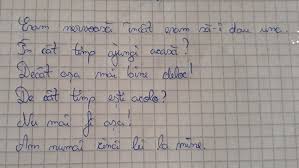 Eram nervoasă încât eram să-i dau una.
În cât timp ajungi acasă?
Decât așa mai bine deloc!
De cât timp este acolo?
Nu mai fi așa!
Am numai cinci lei la mine.